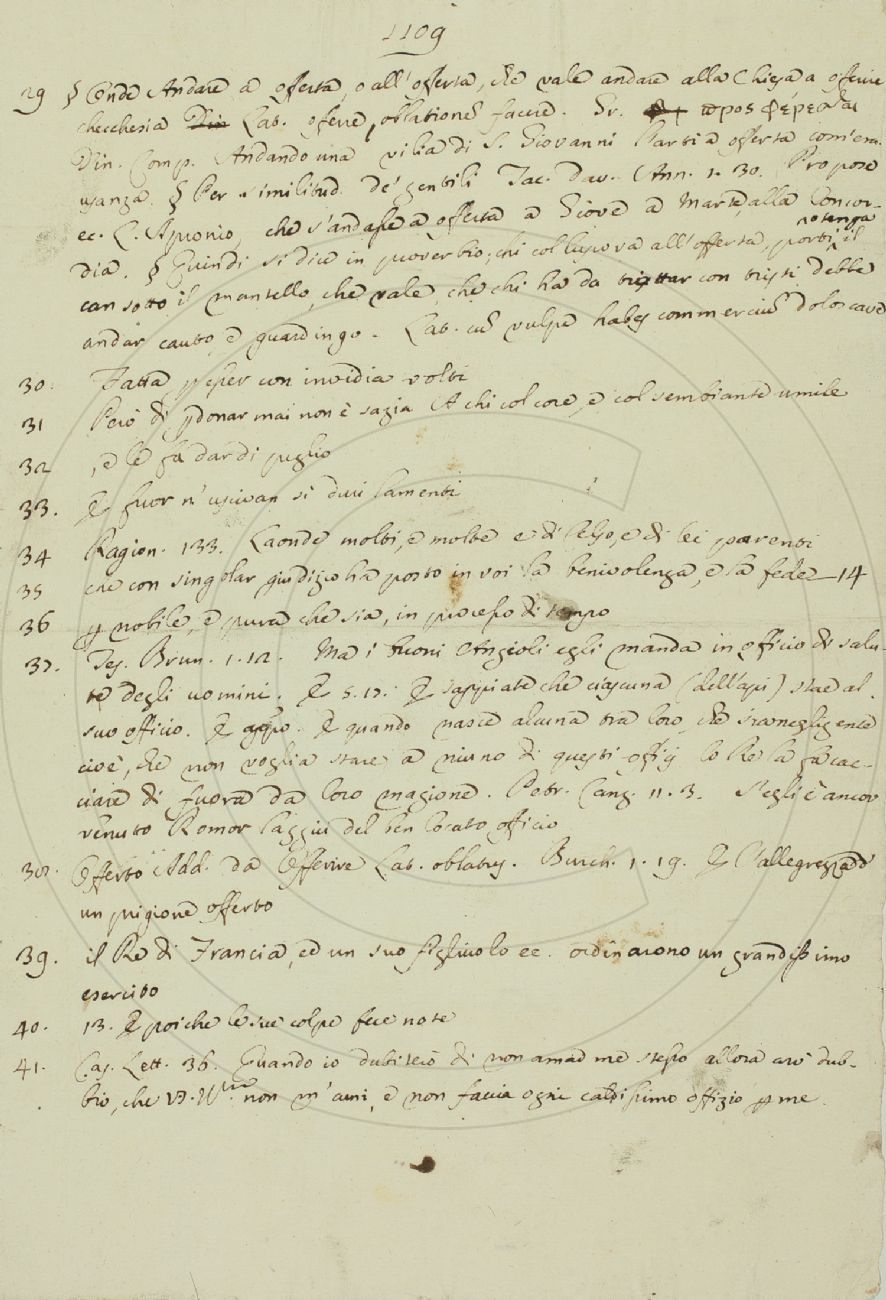 1109
29 § Onde Andare a offerta, o all'offerta, che vale andare alla Chiesa a offerire
checchesia Lat. oferre, oblationẽ facere. Gr. προσφέρεσθαι
Din. Comp. Andando una vilia di S. Giovanni l'arti a offerta com'era
usanza. § Per similitud. de' gentili Tac. Dav. Ann. 1. 30. Propose
ec. L. Apronio, che s'andasse a offerta a Giove a Marte, alla Concor-
dia. § Quindi si dice in proverbio, chi col lupo va all'offerta, porti il
can sotto il mantello, che vale, che chi ha da trattar con tristi debbe
andar cauto, e guardingo. Lat. cũ vulpe habes commerciũ dolos cave
30. Fatta p esser con invidia volti
31 Però di pdonar mai non è sazia A chi col core, e col sembiante umile
32 , e le fa dar di piglio
33. E fuor n'uscivan si duri lamenti
34 Ragion. 133. Laonde molti, e molte e di lei parenti
35 che con singolar giudizio ha posto in voi la benivolenza, e la fede 14
36 p nobile, e pura che sia, in processo di tempo
37. Tes. Brun. 1. 12. Ma i buoni Angioli egli manda in officio di salu-
te degli uomini. E 5. 17. E sappiate che ciascuna (dell'api) stae al
suo officio. E appo. E quando nasce alcuna tra loro, che sia negligente
cioè, che non voglia stare a niuno di questi offizj lo Re la fa cac-
ciare di fuora da loro magione. Petr. Canz. 11. 3. S'egli è ancor
venuto Romor laggiù del ben locato officio
38. Offerto Add. da Offerire Lat. oblatus. Burch. 1. 19. E l'allegrezza d'
un prigione offerto
39. il Re di Francia, ed un suo figliuolo ec. ordinarono un grandissimo
esercito
40. 13. E poiche le sue colpe fece note
41. Cas. Lett. 36. Quando io dubiterò di non amar me stesso allora arò dub-
bio, che V. non m'ami, e non faccia ogni caldissimo offizio p me.